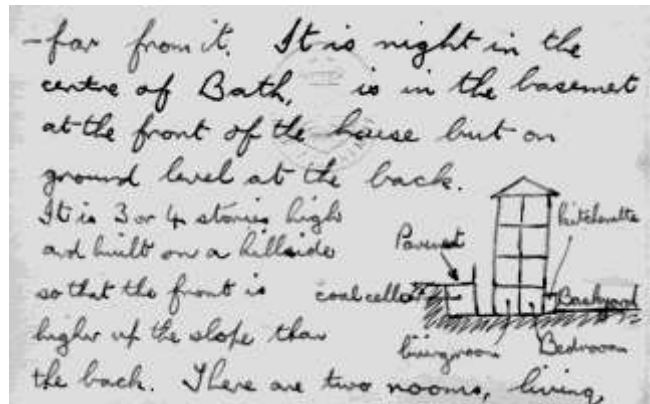 -far from it. It is night in the
centre of Bath, is in the basemet
at the front of the house but on
ground level at the back.
It is 3 or 4 stories high
and built on a hillside
so that the front is
higher up the slope than
the back. There are two rooms, living,
Pavement
kitchenette
coal cellar
Backyard
livingroom
Bedroom